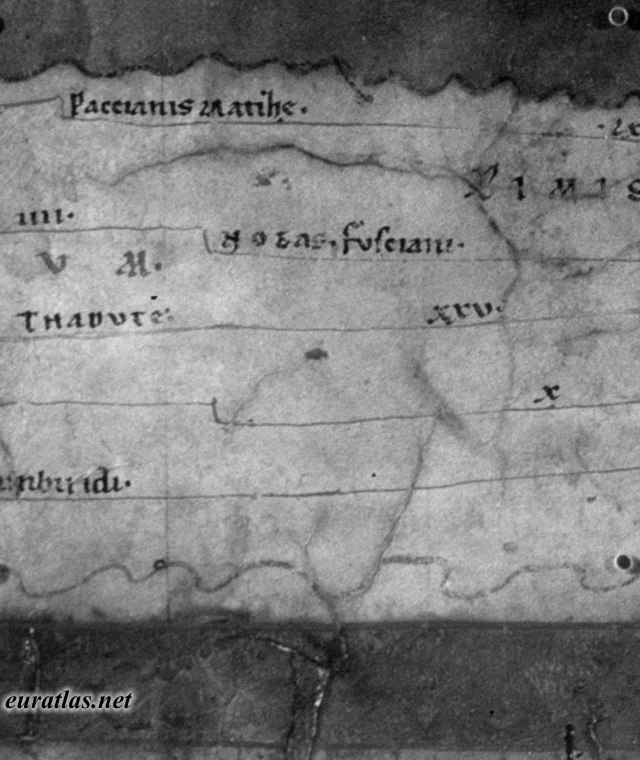 Paccianis Matihe·
·Lx
P I M I S
IIII·
V M·
MOBas·fusciani·
THABVTE:
xxv·
x
mburidi·
euratlas.net